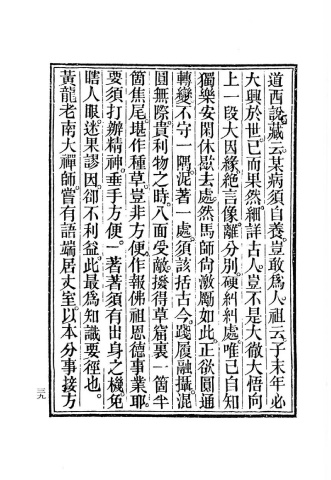 道西說藏云某病須自養豈敢爲人祖云子末年必
大興於世已而果然細詳古人豈不是大徹大悟向
上一段大因緣絕言像離分別硬糾糾處唯已自知
獨樂安閑休歇去處然馬師尙激勵如此正欲圓通
轉變不守一隅泥著一處須該括古今踐履融攝混
圓無際貴利物之時八面受敵撥得草窩裏一箇半
箇焦尾堪作種草豈非方便作報佛祖恩德事業耶
要須打辦精神垂手方便一著著須有出身之機免
瞎人眼迷果謬因卻不利益此最爲知識要徑也
黃龍老南大禪師嘗有語端居丈室以本分事接方
三九